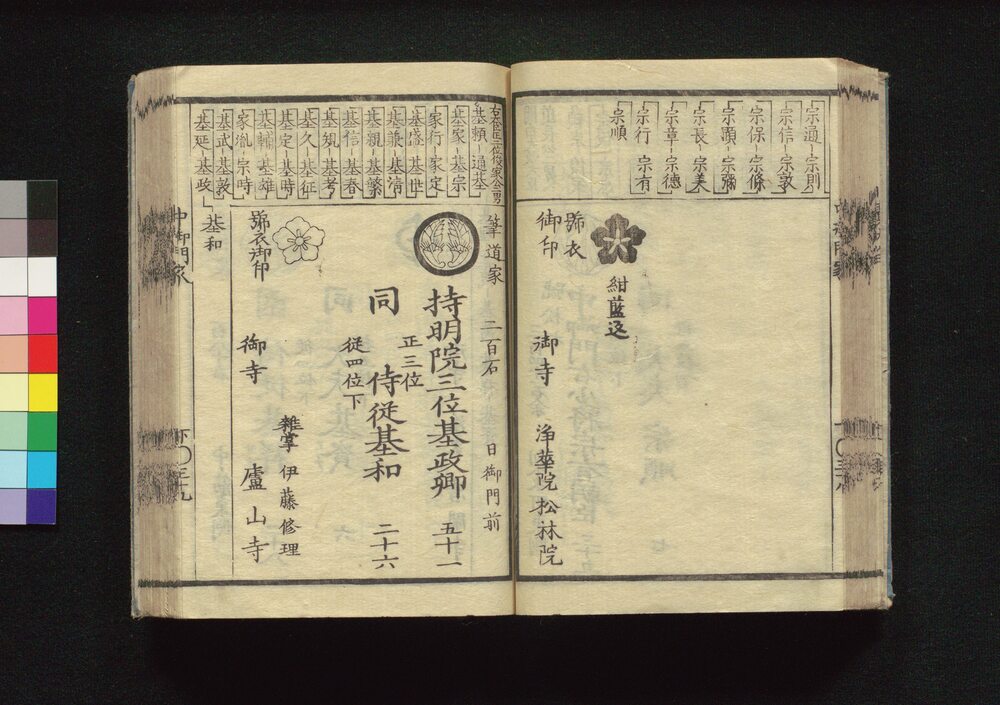 宗通－宗則
宗信－宗敦
宗保－宗條
宗顕－宗彌
宗長－宗美
宗章－宗德
宗行－宗有
宗順
紺藍込
㡡衣
御印
御寺　浄華院松林院
基頼－通基
基家－基宗
家行－家定
基盛－基世
基兼－基清
基親－基繁
基信－基春
基規－基孝
基久－基征
基定－基時
基輔－基雄
家胤－宗時
基武－基敦
基延－基政
基和
筆道家　二百石　日御門前
持明院三位基政卿　五十一
正三位
同　侍従基和　二十六
従四位下
雑掌　伊藤修理
御寺　盧山寺
衣御印
中御門家
下〇三十九